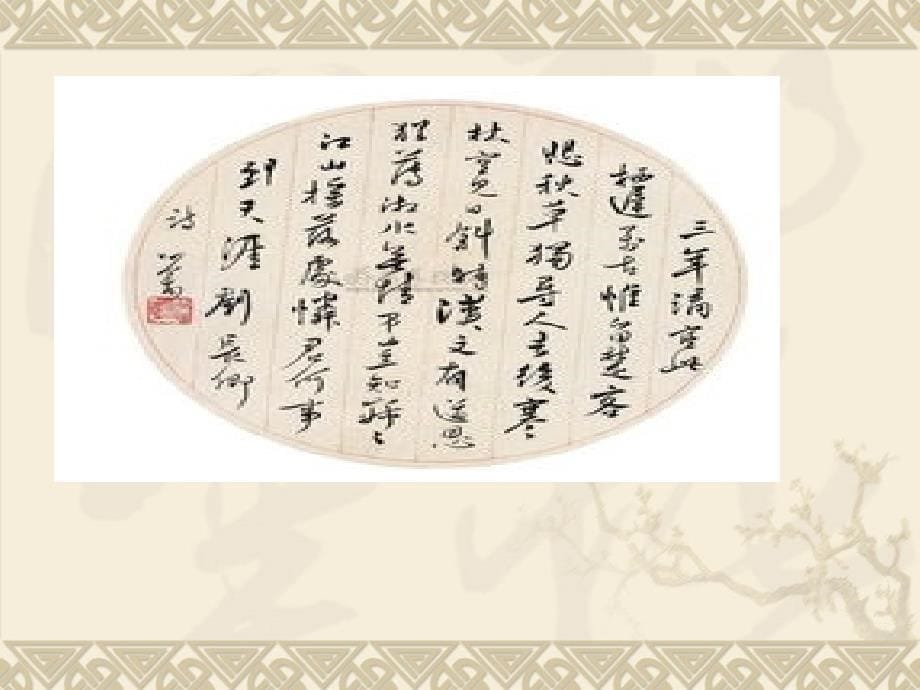 三年謫宦此
栖遲万古惟留楚客
悲秋草獨尋人去後寒
林空見日斜時漢文有道恩
猶薄湘水無情弔豈知寂〻
江山搖落處憐君何事
到天涯 劉長卿
詩 心畬